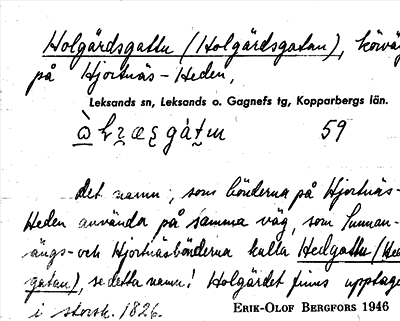 Holgärdsgattu (Holgärdsgatan), körväg
på Hjortnäs-Heden,
Leksands sn, Leksands o. Gagnefs tg, Kopparbergs län.
59
det namn, som bönderna på Hjortnäs-
Heden använda på samma väg, som Sunnan-
ängs- och Hjortnäsbönderna kalla Hedgattu (Hed
gatan), se detta namn! Holgärdet finns upptage
i storsk. 1826.
ERIK-OLOF BERGFORS 1946